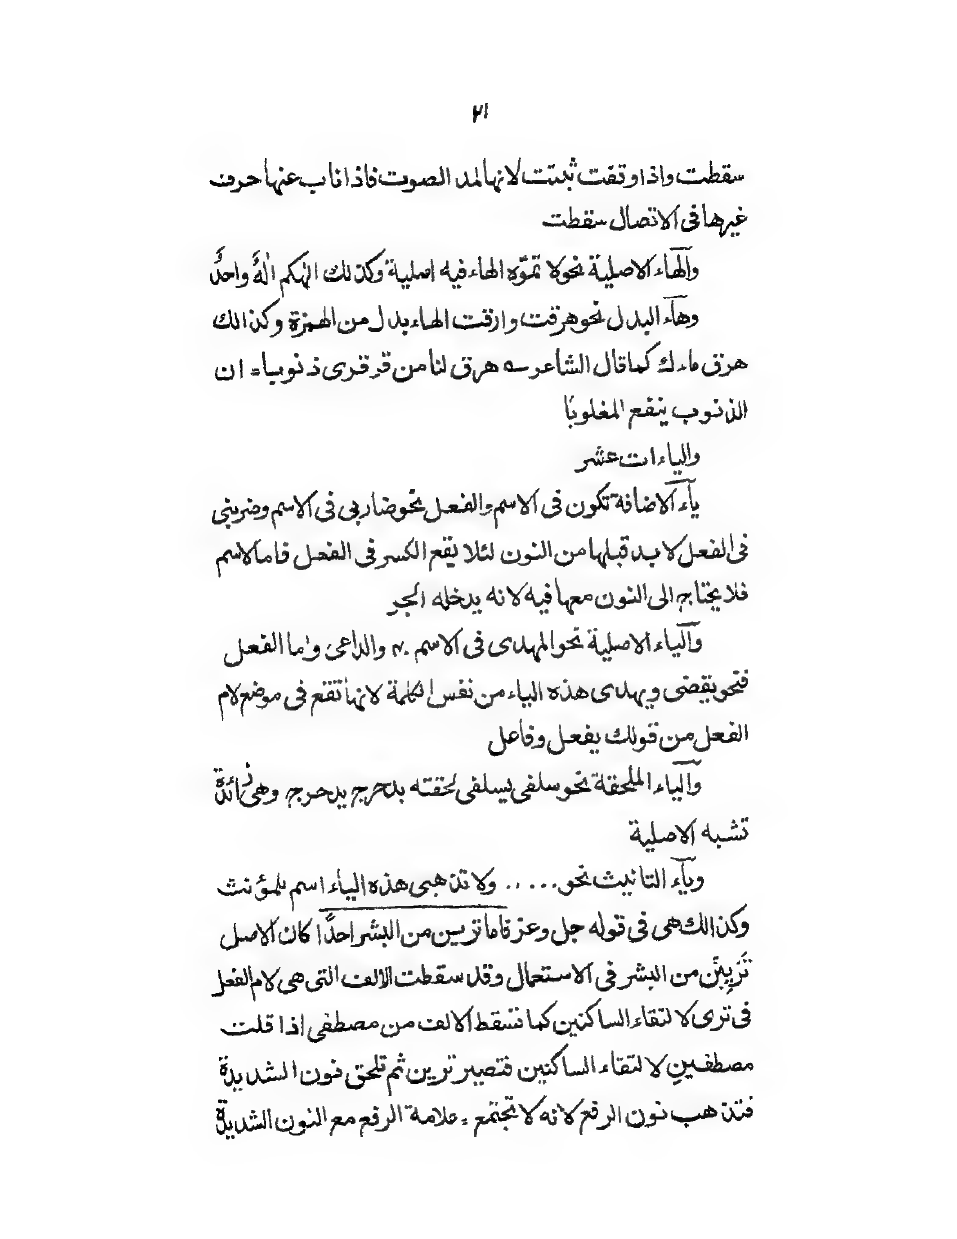 ٢١
سقطت واذا وقفت ثبتت لانها لمد الصوت فاذا ناب عنها حرف
غيرها فى الاتصال سقطت
والهاء الاصلية نحو لا تموّه الهاء فيه اصلية وكذلك الٰهكم الٰهٌ واحدٌ
وهآء البدل نحو هرقت وارقت الهاء بدل من الهمزة وكذالك
هرق ماءك كما قال الشاعر هرق لنا من قرقرى ذنوبا ان
الذنوب ينفع المغلوبا
والياءات عشر
يآء الاضافة تكون فى الاسم والفعل نحو ضاربى فى الاسم وضربنى
فى الفعل لا بد قبلها من النون لئلا يقع الكسر فى الفعل فاما الاسم
فلا يحتاج الى النون معها فيه لانه يدخله الجر
والياء الاصلية نحو المهدى فى الاسم والداعى واما الفعل
فنحو يقضى ويهدى هذه الياء من نفس الكلمة لانها تقع فى موضع لام
الفعل من قولك يفعل وفاعل
والياء الملحقة نحو سلقى يسلقى لحقته بدحرج يدحرج وهى زائدة
تشبه الاصلية
ويآء التانيث نحو ..... ولا تذهبى هذه الياء اسم للمؤنث
وكذالك هى فى قوله جل وعز فاما ترين من البشر احدًا كان الاصل
تَرَيِينَ من البشر فى الاستعمال وقد سقطت الالف التى هى لام الفعل
فى ترى لالتقاء الساكنين كما تسقط الالف من مصطفى اذا قلت
مصطفينِ لالتقاء الساكنين فتصير ترين ثم تلحق نون الشديدة
فتذهب نون الرفع لانه لا تجتمع علامة الرفع مع النون الشديدة